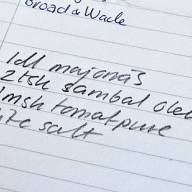 Broad & Wade
1dl majonäs
2tsk sambal oele
1msk tomatpure
lite salt